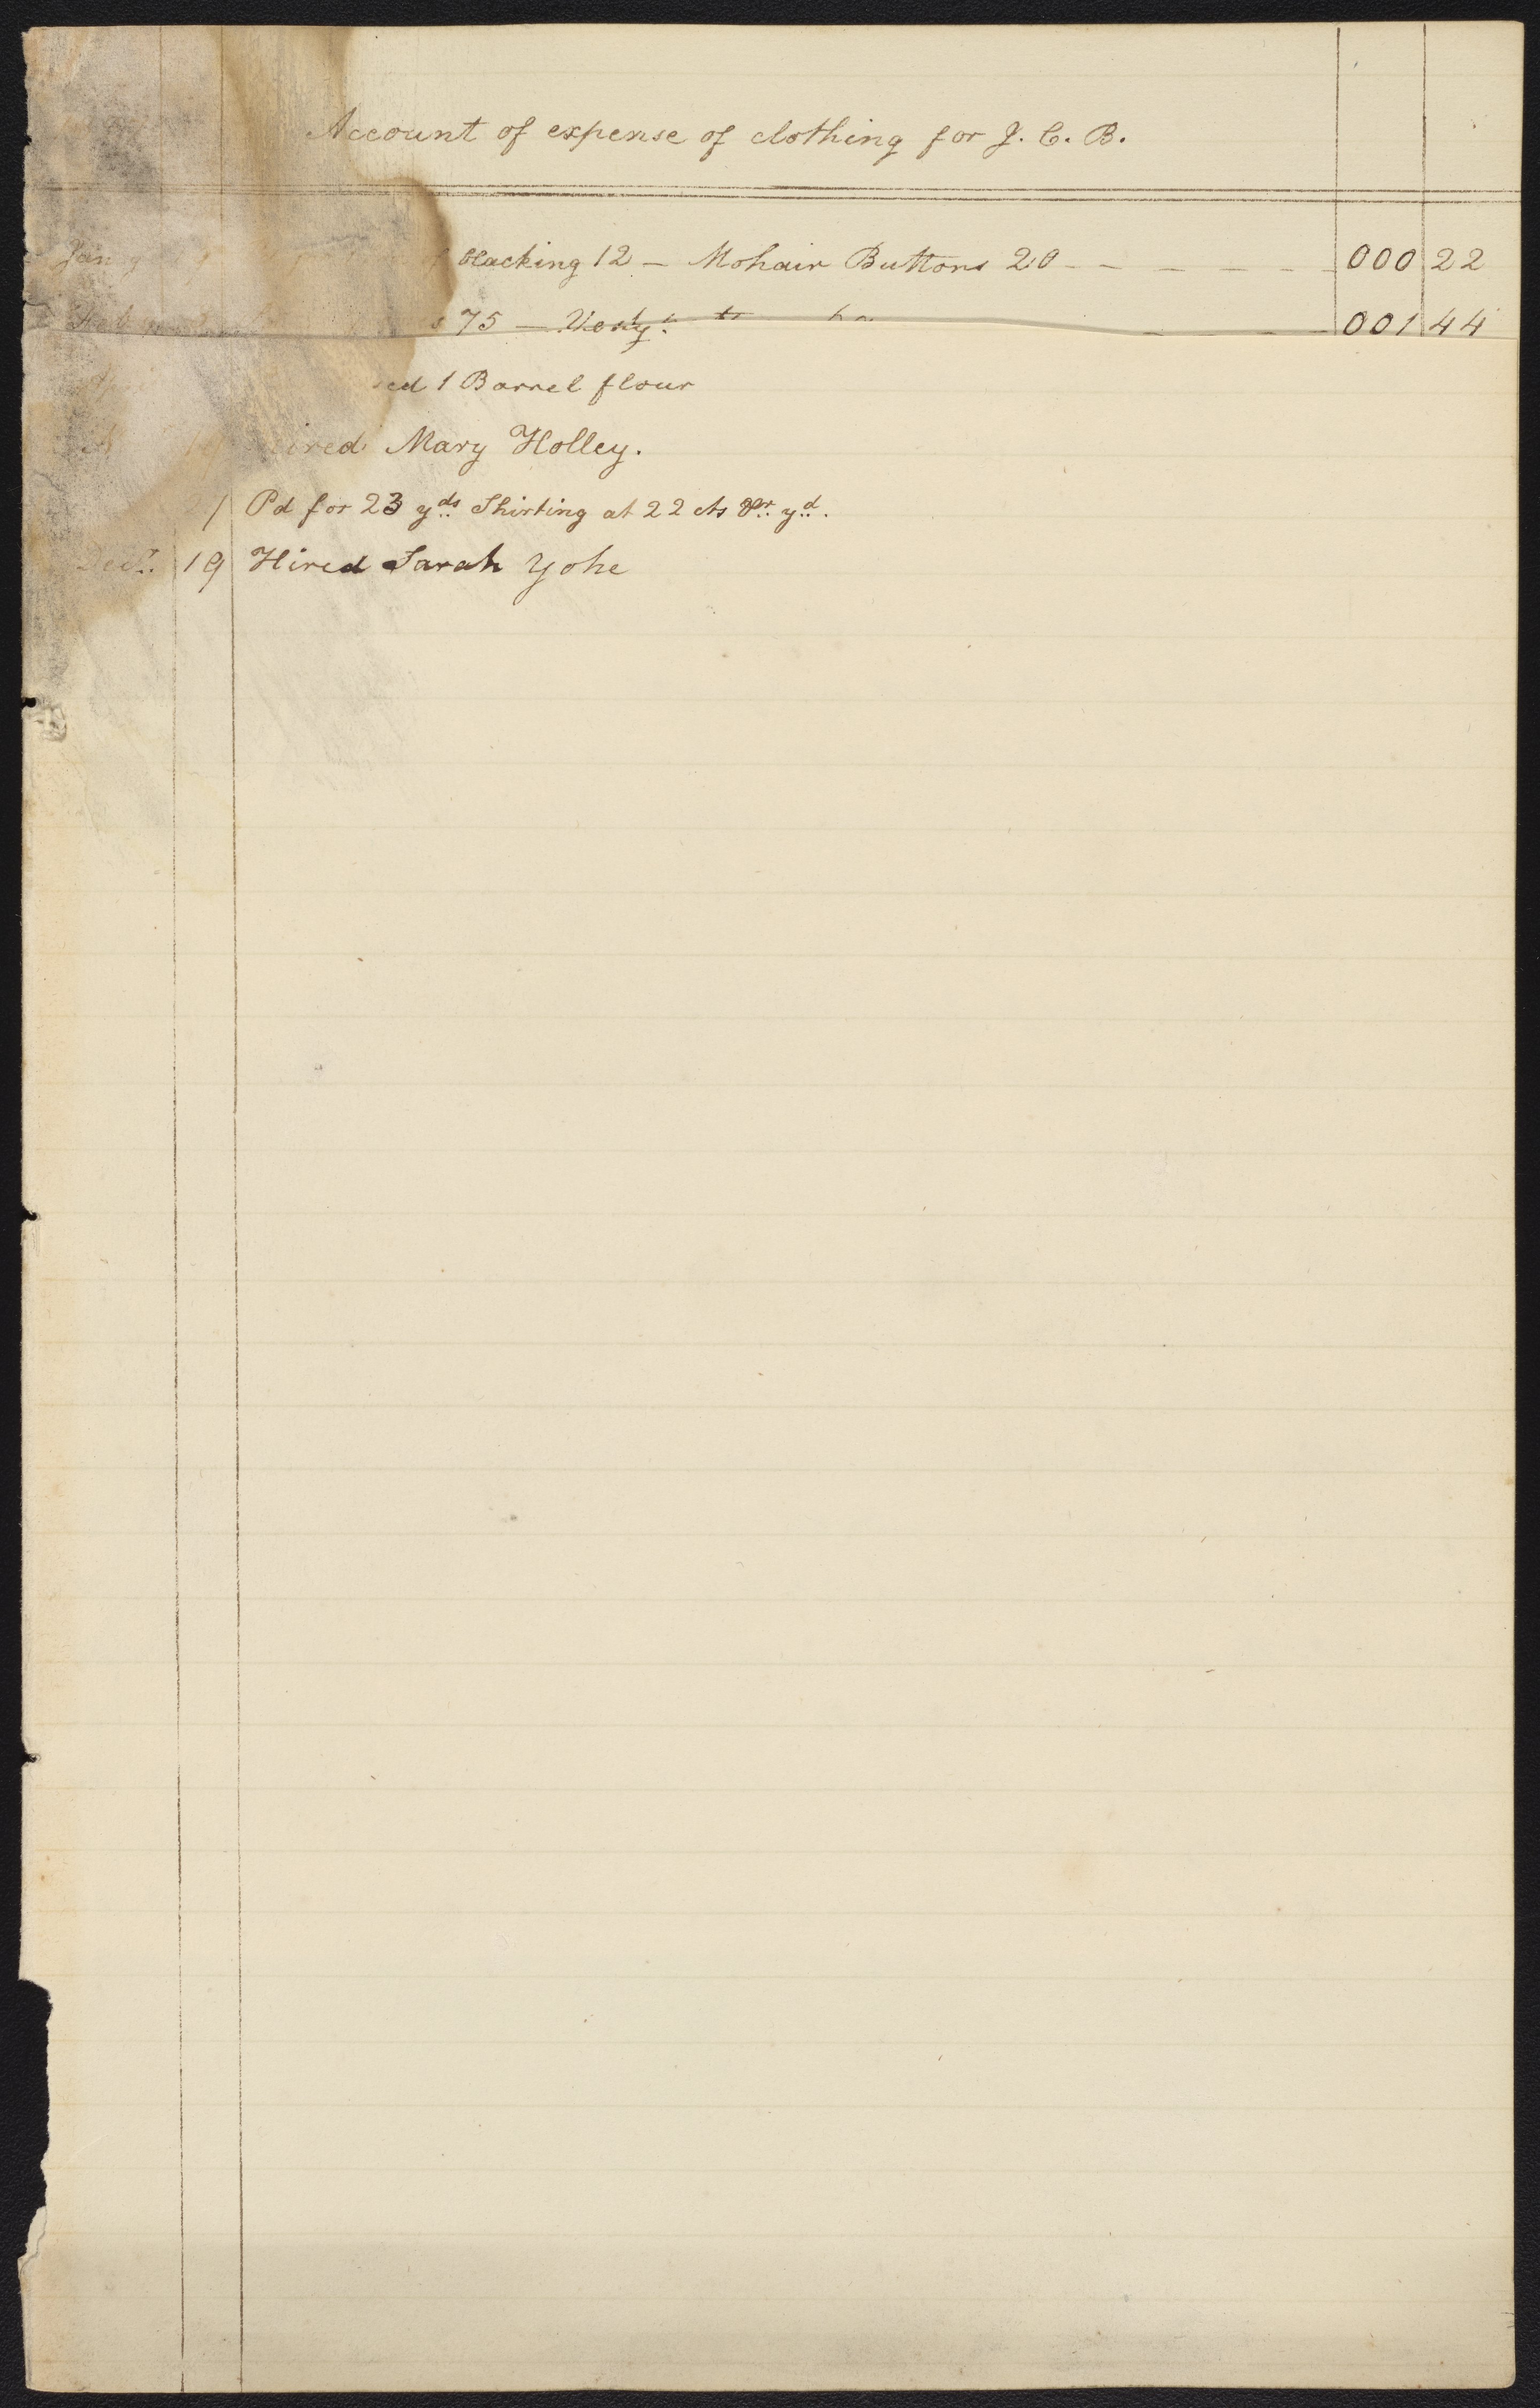 Account of expense of clothing for J. C. B.
Jany blacking 12 — Mohair Buttons 20 - - - - - - 000 22
Feby 75 — - - 001 44
1 Barrel flour
19 Hired Mary Holley.
21 Pd for 23 yds Shirting at 22 cts per yd.
Decr. 19 Hired Sarah Yohe